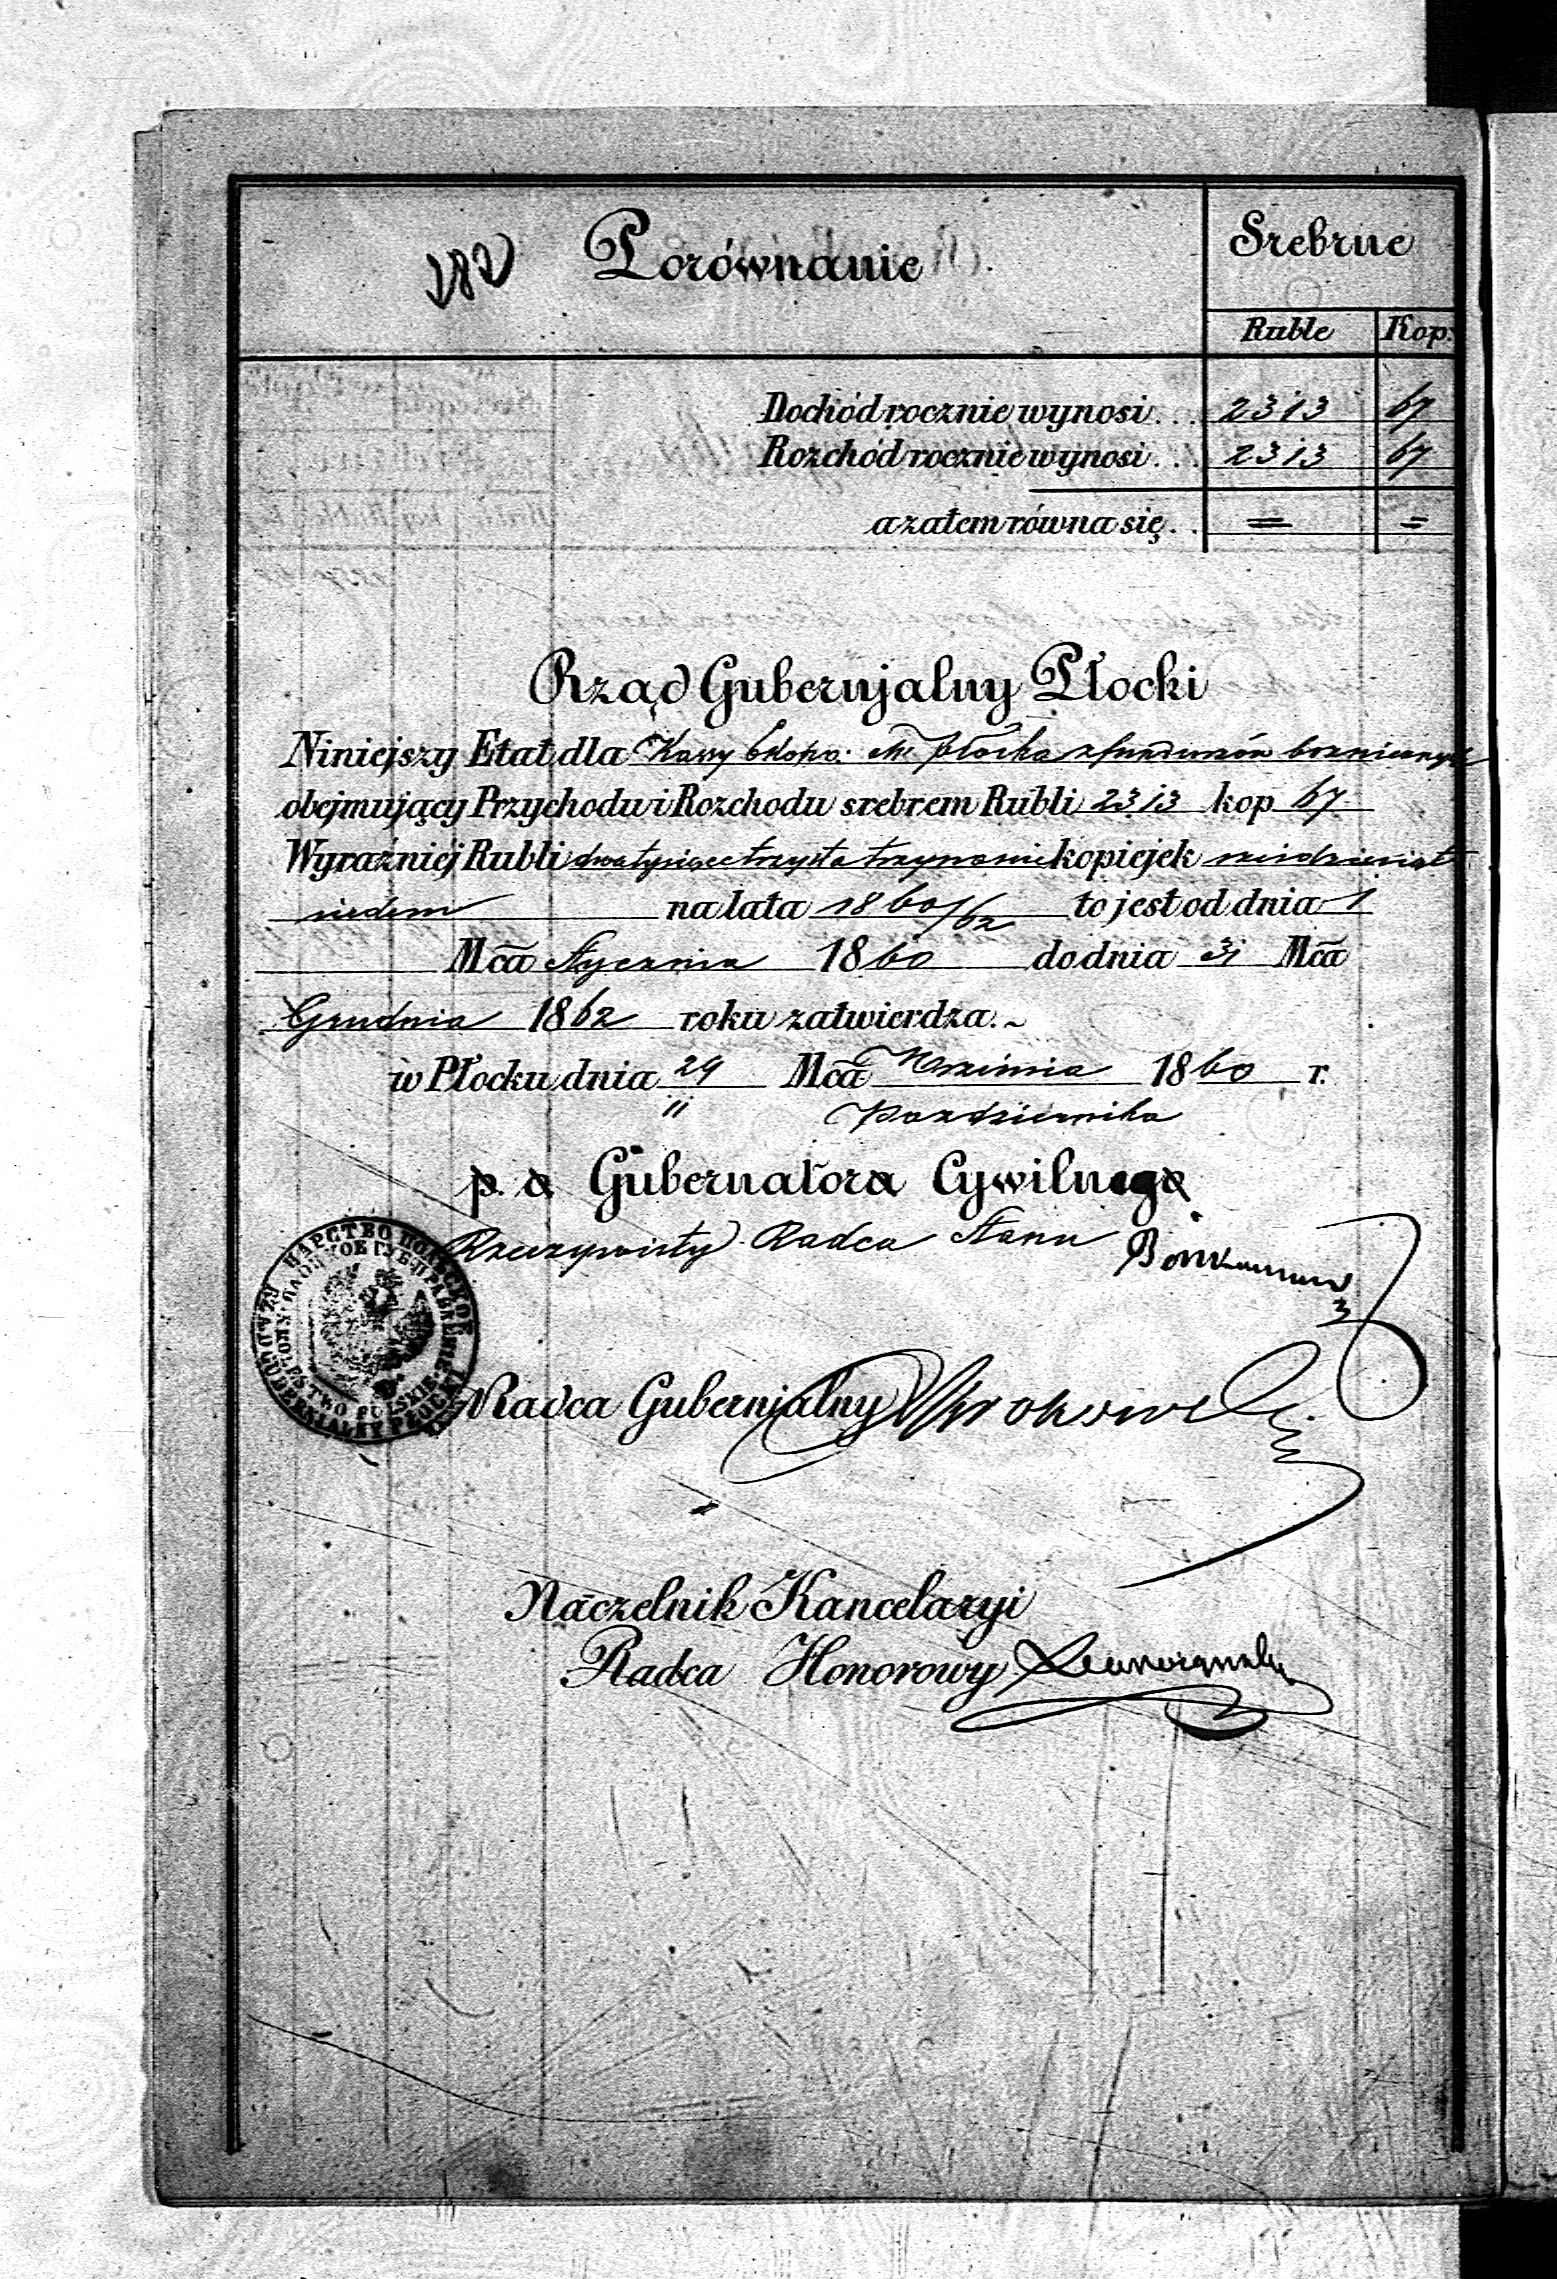 282 Porównanie
Srebrne
Ruble Kop:
Dochód rocznie wynosi... 2313 67
Rozchód rocznie wynosi... 2313 67
a zatem równa się.. = =
Rząd Gubernjalny Płocki
Niniejszy Etat dla Kassy Ekono: M. Płocka z funduszów bozniczych
obejmujący Przychodu i Rozchodu srebrem Rubli 2313 kop 67
Wyraźniéj Rubli dwa tysiące trzysta trzynaście kopiejek sześdziesiąt
siedem na lata 1860/62 to jest od dnia 1
Mca Stycznia 1860 do dnia 31 Mca
Grudnia 1862 roku zatwierdza.~
w Płocku dnia 29 Mca Września 1860 r.
11 Października
p. o Gubernatora Cywilnego
Rzeczywisty Radca Stanu
ЦАРСТВО ПОЛЬСКОЕ
ПЛОЦКОЕ ГУБ. ПРАВЛЕНИЕ
KRÓLESTWO POLSKIE
RZĄD GUBERNIALNY PŁOCKI
Radca Gubernjalny
Naczelnik Kancelaryi
Radca Honorowy